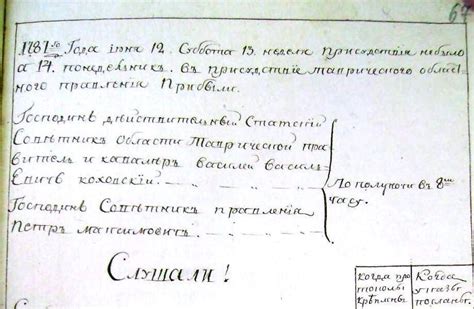 67
1787го Года іюня 12. Суббота 13. неделя присудствія небыло
а 14. понедельник. въ присудствіе таврическаго облас
ного правленія Прибыли.
Господинъ действительный Статскій
Советникъ области Таврической пра
витель и кавалеръ василей василь
евичь коховскій.
Господинъ Советникъ правленія
Петръ максимовичь.
По полуночи въ 8мъ
часу.
Слушали!
когда про
токолы
крѣплены
Когда
указы
посланы